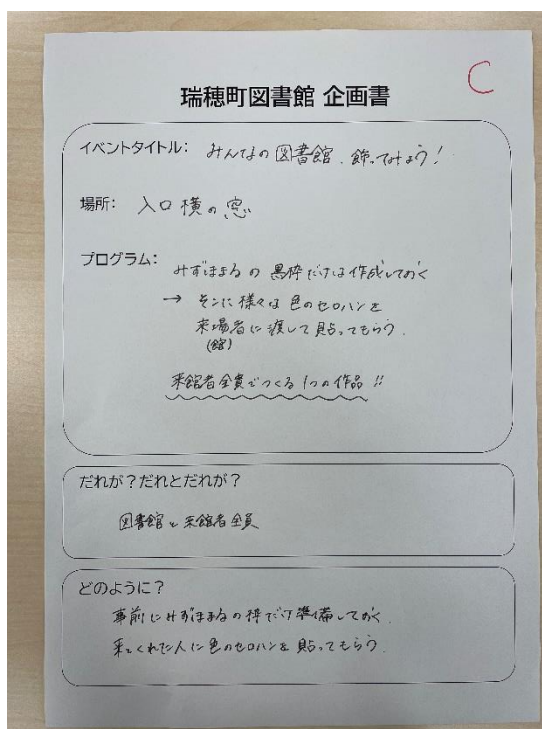 C
瑞穂町図書館 企画書
イベントタイトル: みんなの図書館、飾ってみよう!
場所: 入口横の窓
プログラム:
みずほまるの黒枠だけは作成しておく
→ そこに様々な色のセロハンを
来場者に渡して貼ってもらう.
(館)
来館者全員でつくる1つの作品!!
だれが?だれとだれが?
図書館と来館者全員
どのように?
事前にみずほまるの枠だけ準備しておく.
来てくれた人に色のセロハンを貼ってもらう.